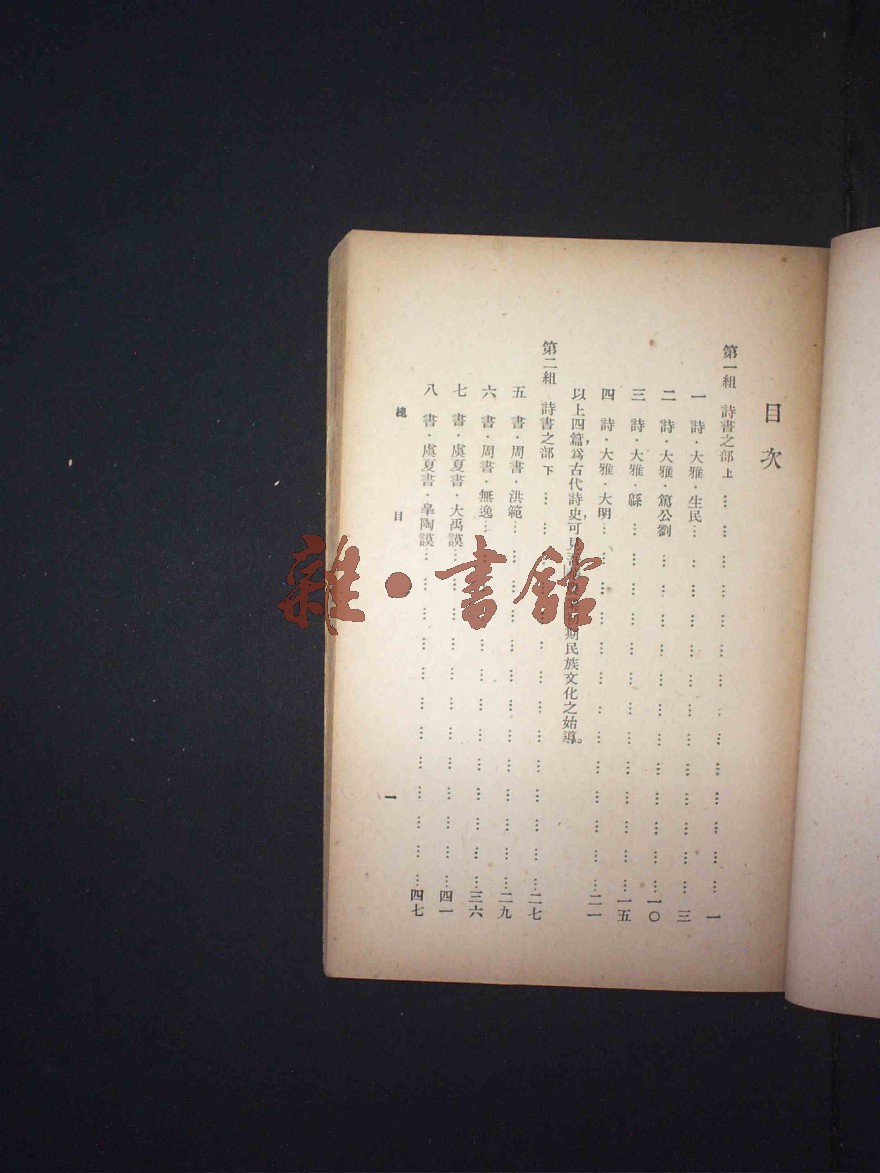 目次
第一組 詩書之部上 … … … … … … … … … … … … … … 一
一 詩·大雅·生民… … … … … … … … … … … … … 三
二 詩·大雅·篤公劉 … … … … … … … … … … … …一〇
三 詩·大雅·緜 … … … … … … … … … … … … …一五
四 詩·大雅·大明… … … … … … … … … … … … …二一
以上四篇,爲古代詩史,可見 期民族文化之始導。
第二組 詩書之部下 … … … … … … … … … … … … … …二七
五 書·周書·洪範… … … … … … … … … … … … …二九
六 書·周書·無逸… … … … … … … … … … … … …三六
七 書·虞夏書·大禹謨… … … … … … … … … … … …四一
八 書·虞夏書·皋陶謨… … … … … … … … … … … …四七
總目 一
雜·書館